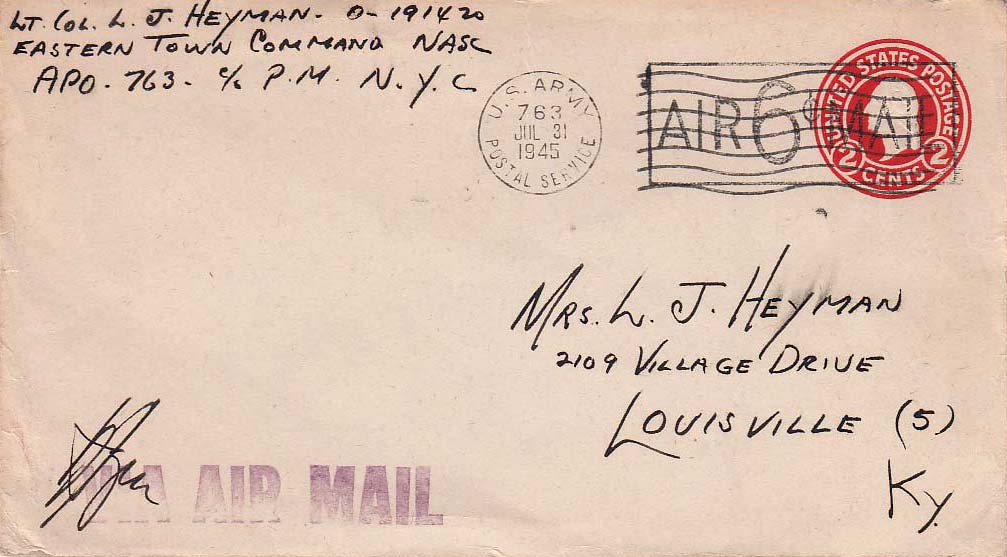 LT. COL. L. J. HEYMAN. O-191420
EASTERN TOWN COMMAND NASC
APO. 763. c/o P.M. N.Y.C
U.S. ARMY
763
JUL 31
1945
POSTAL SERVICE
AIR 6c MAIL
UNITED STATES POSTAGE
2 CENTS 2
MRS. L. J. HEYMAN
2109 VILLAGE DRIVE
LOUISVILLE (5)
KY.
VIA AIR MAIL